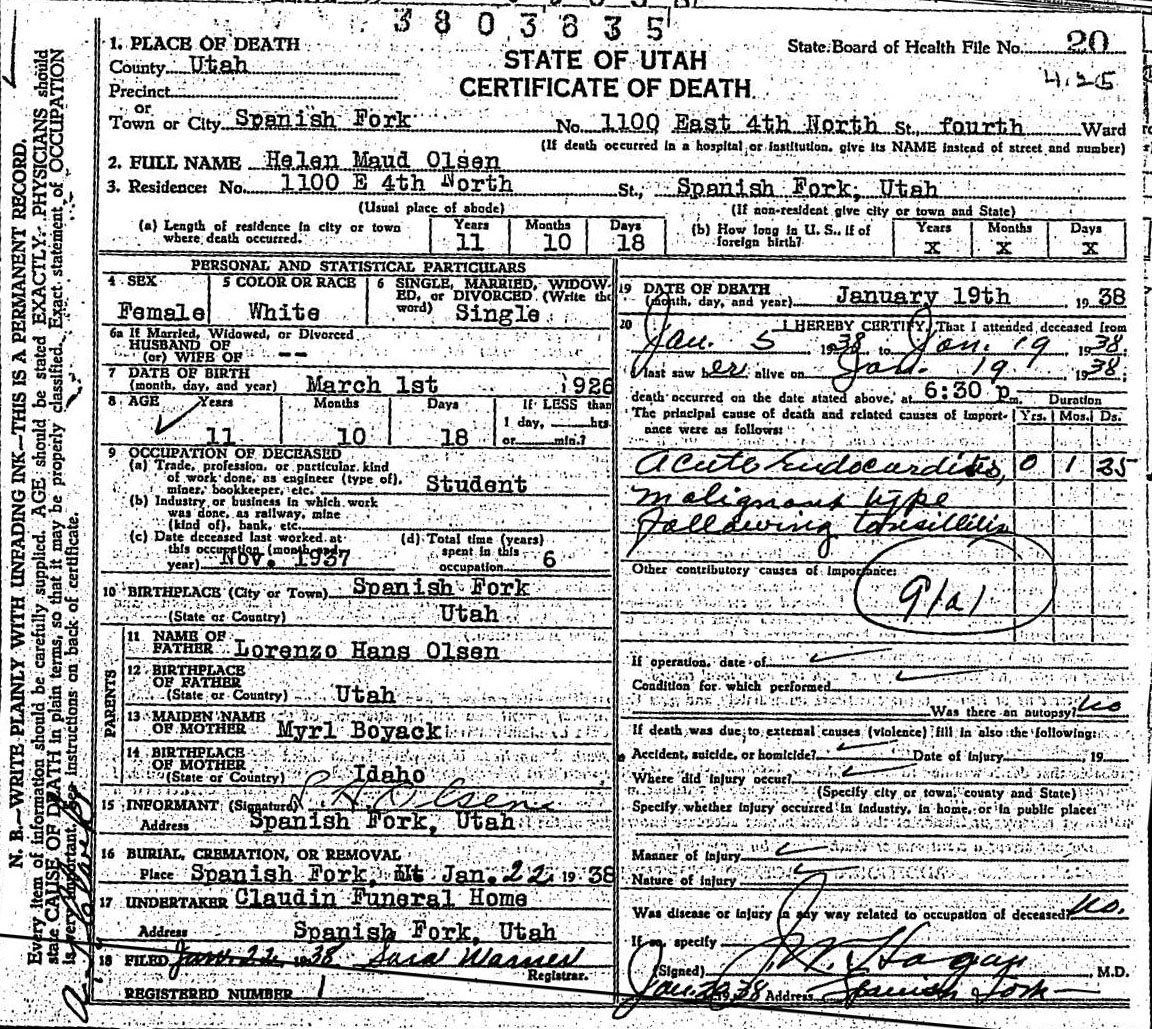 3803835
1. PLACE OF DEATH
County Utah
Precinct
or
Town or City Spanish Fork
STATE OF UTAH
CERTIFICATE OF DEATH
State Board of Health File No. 20
425
No. 1100 East 4th North St., fourth Ward
(If death occurred in a hospital or institution, give its NAME instead of street and number)
2. FULL NAME Helen Maud Olsen
3. Residence: No. 1100 E 4th North St., Spanish Fork, Utah
(Usual place of abode) (If non-resident give city or town and State)
(a) Length of residence in city or town where death occurred. Years 11 Months 10 Days 18
(b) How long in U. S., if of foreign birth? Years x Months x Days x
PERSONAL AND STATISTICAL PARTICULARS
4 SEX Female
5 COLOR OR RACE White
6 SINGLE, MARRIED, WIDOWED, or DIVORCED (Write the word) Single
6a If Married, Widowed, or Divorced
HUSBAND OF
(or) WIFE OF --
7 DATE OF BIRTH
(month, day, and year) March 1st 1926
8 AGE Years 11 Months 10 Days 18 If LESS than 1 day, hrs. or min.?
9 OCCUPATION OF DECEASED
(a) Trade, profession, or particular kind
of work done, as engineer (type of),
miner, bookkeeper, etc. Student
(b) Industry or business in which work
was done, as railway, mine
(kind of), bank, etc.
(c) Date deceased last worked at
this occupation (month and
year) Nov. 1937
(d) Total time (years)
spent in this
occupation 6
10 BIRTHPLACE (City or Town) Spanish Fork
(State or Country) Utah
PARENTS
11 NAME OF
FATHER Lorenzo Hans Olsen
12 BIRTHPLACE
OF FATHER
(State or Country) Utah
13 MAIDEN NAME
OF MOTHER Myrl Boyack
14 BIRTHPLACE
OF MOTHER
(State or Country) Idaho
15 INFORMANT (Signature) L. H. Olsen
Address Spanish Fork, Utah
16 BURIAL, CREMATION, OR REMOVAL
Place Spanish Fork, Ut Jan. 22, 1938
17 UNDERTAKER Claudin Funeral Home
Address Spanish Fork, Utah
18 FILED Jan. 22, 1938 Sara Warner
Registrar.
REGISTERED NUMBER 1
19 DATE OF DEATH
(month, day, and year) January 19th 1938
20 I HEREBY CERTIFY, That I attended deceased from
Jan. 5 1938, to Jan. 19, 1938,
I last saw her alive on Jan. 19 1938;
death occurred on the date stated above, at 6:30 p m. Duration
The principal cause of death and related causes of importance were as follows: Yrs. Mos. Ds.
Acute Endocarditis, 0 1 25
malignant type
following tonsillitis
Other contributory causes of importance:
91a1
If operation, date of
Condition for which performed
Was there an autopsy? no
If death was due to external causes (violence) fill in also the following:
Accident, suicide, or homicide? Date of injury , 19
Where did injury occur?
(Specify city or town, county and State)
Specify whether injury occurred in industry, in home, or in public place:
Manner of injury
Nature of injury
Was disease or injury in any way related to occupation of deceased? no.
If so, specify
(Signed) J. W. Hagan M.D.
Jan. 1938 Address Spanish Fork
N. B.—WRITE PLAINLY WITH UNFADING INK—THIS IS A PERMANENT RECORD.
Every item of information should be carefully supplied. AGE should be stated EXACTLY. PHYSICIANS should
state CAUSE OF DEATH in plain terms, so that it may be properly classified. Exact statement of OCCUPATION
is very important. See instructions on back of certificate.